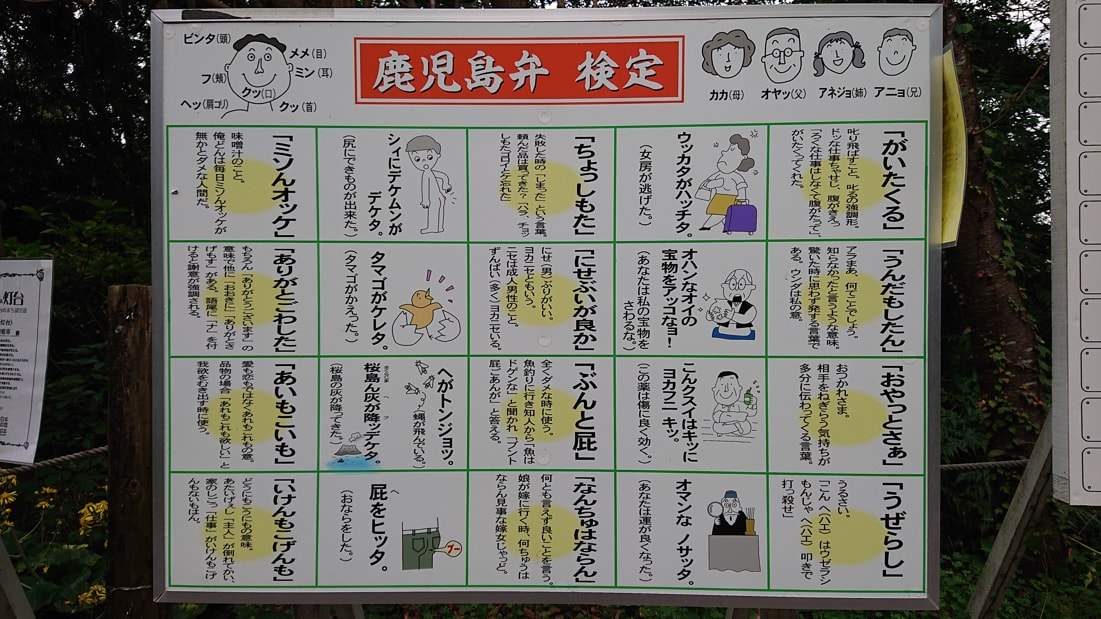 鹿児島弁 検定
ビンタ(頭)
メメ(目)
ミン(耳)
フ(頬)
クッ(口)
ヘッ(肩ゴリ)
クッ(首)
カカ(母)
オヤッ(父)
アネジョ(姉)
アニョ(兄)
「がいたくる」
叱り飛ばすこと。叱るの強調形。
ドンな仕事ちゃせし、腹がきえっ
がいたくってくれた。
「うんだもしたん」
アラまあ、何てことでしょう。
知らなかったと言うような意味。
驚いた時に思わず発する言葉で
ある。ウンダは私の意。
「おやっとさぁ」
おつかれさま。
相手をねぎらう気持ちが
多分に伝わってくる言葉。
「うぜらし」
うるさい。
「こん ヘ(ハエ)はウゼラシ
もんじゃ ヘ(ハエ) 叩きで
打っ殺せ」
ウッカタがハッチタ。
(女房が逃げた。)
オハンなオイの
宝物をアッコなヨ!
(あなたは私の宝物を
さわるな。)
こんクスイはキッに
ヨカフニ キッ。
(この薬は傷に良く効く。)
オマンな ノサッタ。
(あなたは運が良くなった。)
「ちょっしもた」
失敗した時の「しまった」という言葉。
頼んだ品は買ってきた?「ハラ、チョッ
しもた
「にせぶいが良か」
にせ(男)ぶりがいい。
ヨカニセともいう。
ニセは成人男性のこと。
ずんばい(多く)ヨカニセいる。
「ぶんと屁」
全くダメな時に使う。
魚釣りに行き知人から「魚は
ドゲンな」と聞かれ「ブント
屁ごあんが」と答える。
「なんちゅはならん」
何とも言えず良いことを言う。
娘が嫁に行く時、何ちゅうは
ならん見事な嫁女じゃっど。
シィにデケムンが
デケタ。
(尻にできものが出来た。)
タマゴがケレタ。
(タマゴがかえった。)
へがトンジョッ。
(蝿が飛んでいる。)
桜島ん灰が降ッデケタ。
(桜島の灰が降ってきた。)
屁をヒッタ。
(おならをした。)
プー
「ミソんオッケ」
味噌汁のこと。
俺どんは毎日ミソんオッケが
無かとダメな人間だ。
「ありがとこわした」
もちろん「ありがとうございます」の
意味で他に「おおきに」「ありがとさ
げもす」がある。語尾に「ナ」を付
けると謝意が強調される。
「あいもこいも」
愛も恋もではなくあれもこれもの意。
品物の場合「あれもこれも欲しい」と
我欲をむき出す時に使う。
「いけんもこげんも」
どうにもこうにもの意味。
あたいげぇし「主人」が倒れてかい、
家んしごっ「仕事」がいけんもこげ
んもないもはん。
灯台